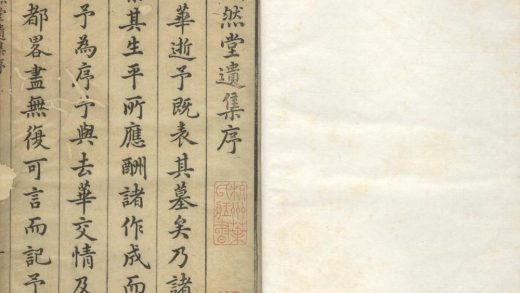 然堂遺集序
華逝予既表其墓矣乃諸
其生平所應酬諸作成而
予為序予與去華交情及
都畧盡無復可言而記予
然堂遺集序